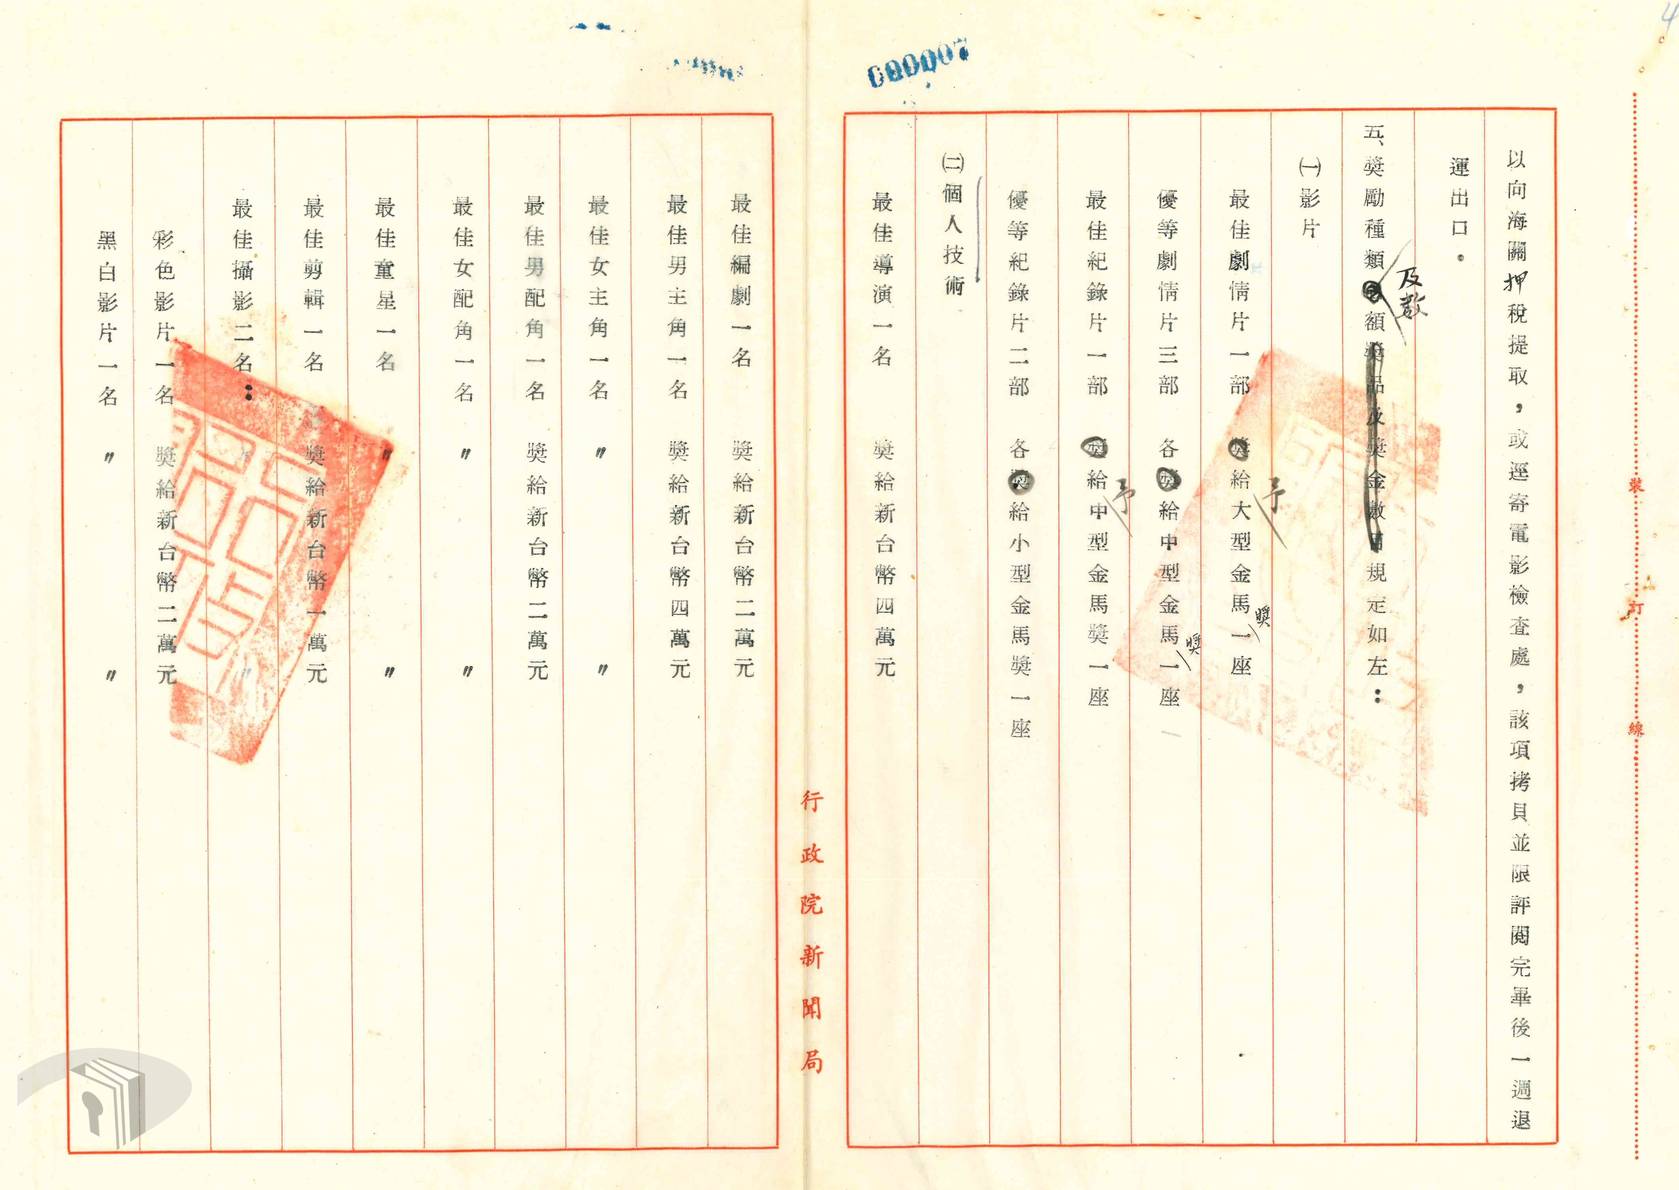 000007
4
以向海關押稅提取，或逕寄電影檢查處，該項拷貝並限評閱完畢後一週退
運出口。
五、獎勵種類及數額獎品及獎金數目規定如左：
㈠影片
最佳劇情片一部 獎給予大型金馬獎一座
優等劇情片三部 各獎給中型金馬獎一座
最佳紀錄片一部 獎給予中型金馬獎一座
優等紀錄片二部 各獎給小型金馬獎一座
㈡個人技術
最佳導演一名 獎給新台幣四萬元
行政院新聞局
最佳編劇一名 獎給新台幣二萬元
最佳男主角一名 獎給新台幣四萬元
最佳女主角一名 〃 〃
最佳男配角一名 獎給新台幣二萬元
最佳女配角一名 〃 〃
最佳童星一名 〃 〃
最佳剪輯一名 獎給新台幣一萬元
最佳攝影二名：
彩色影片一名 獎給新台幣二萬元
黑白影片一名 〃 〃
裝訂線